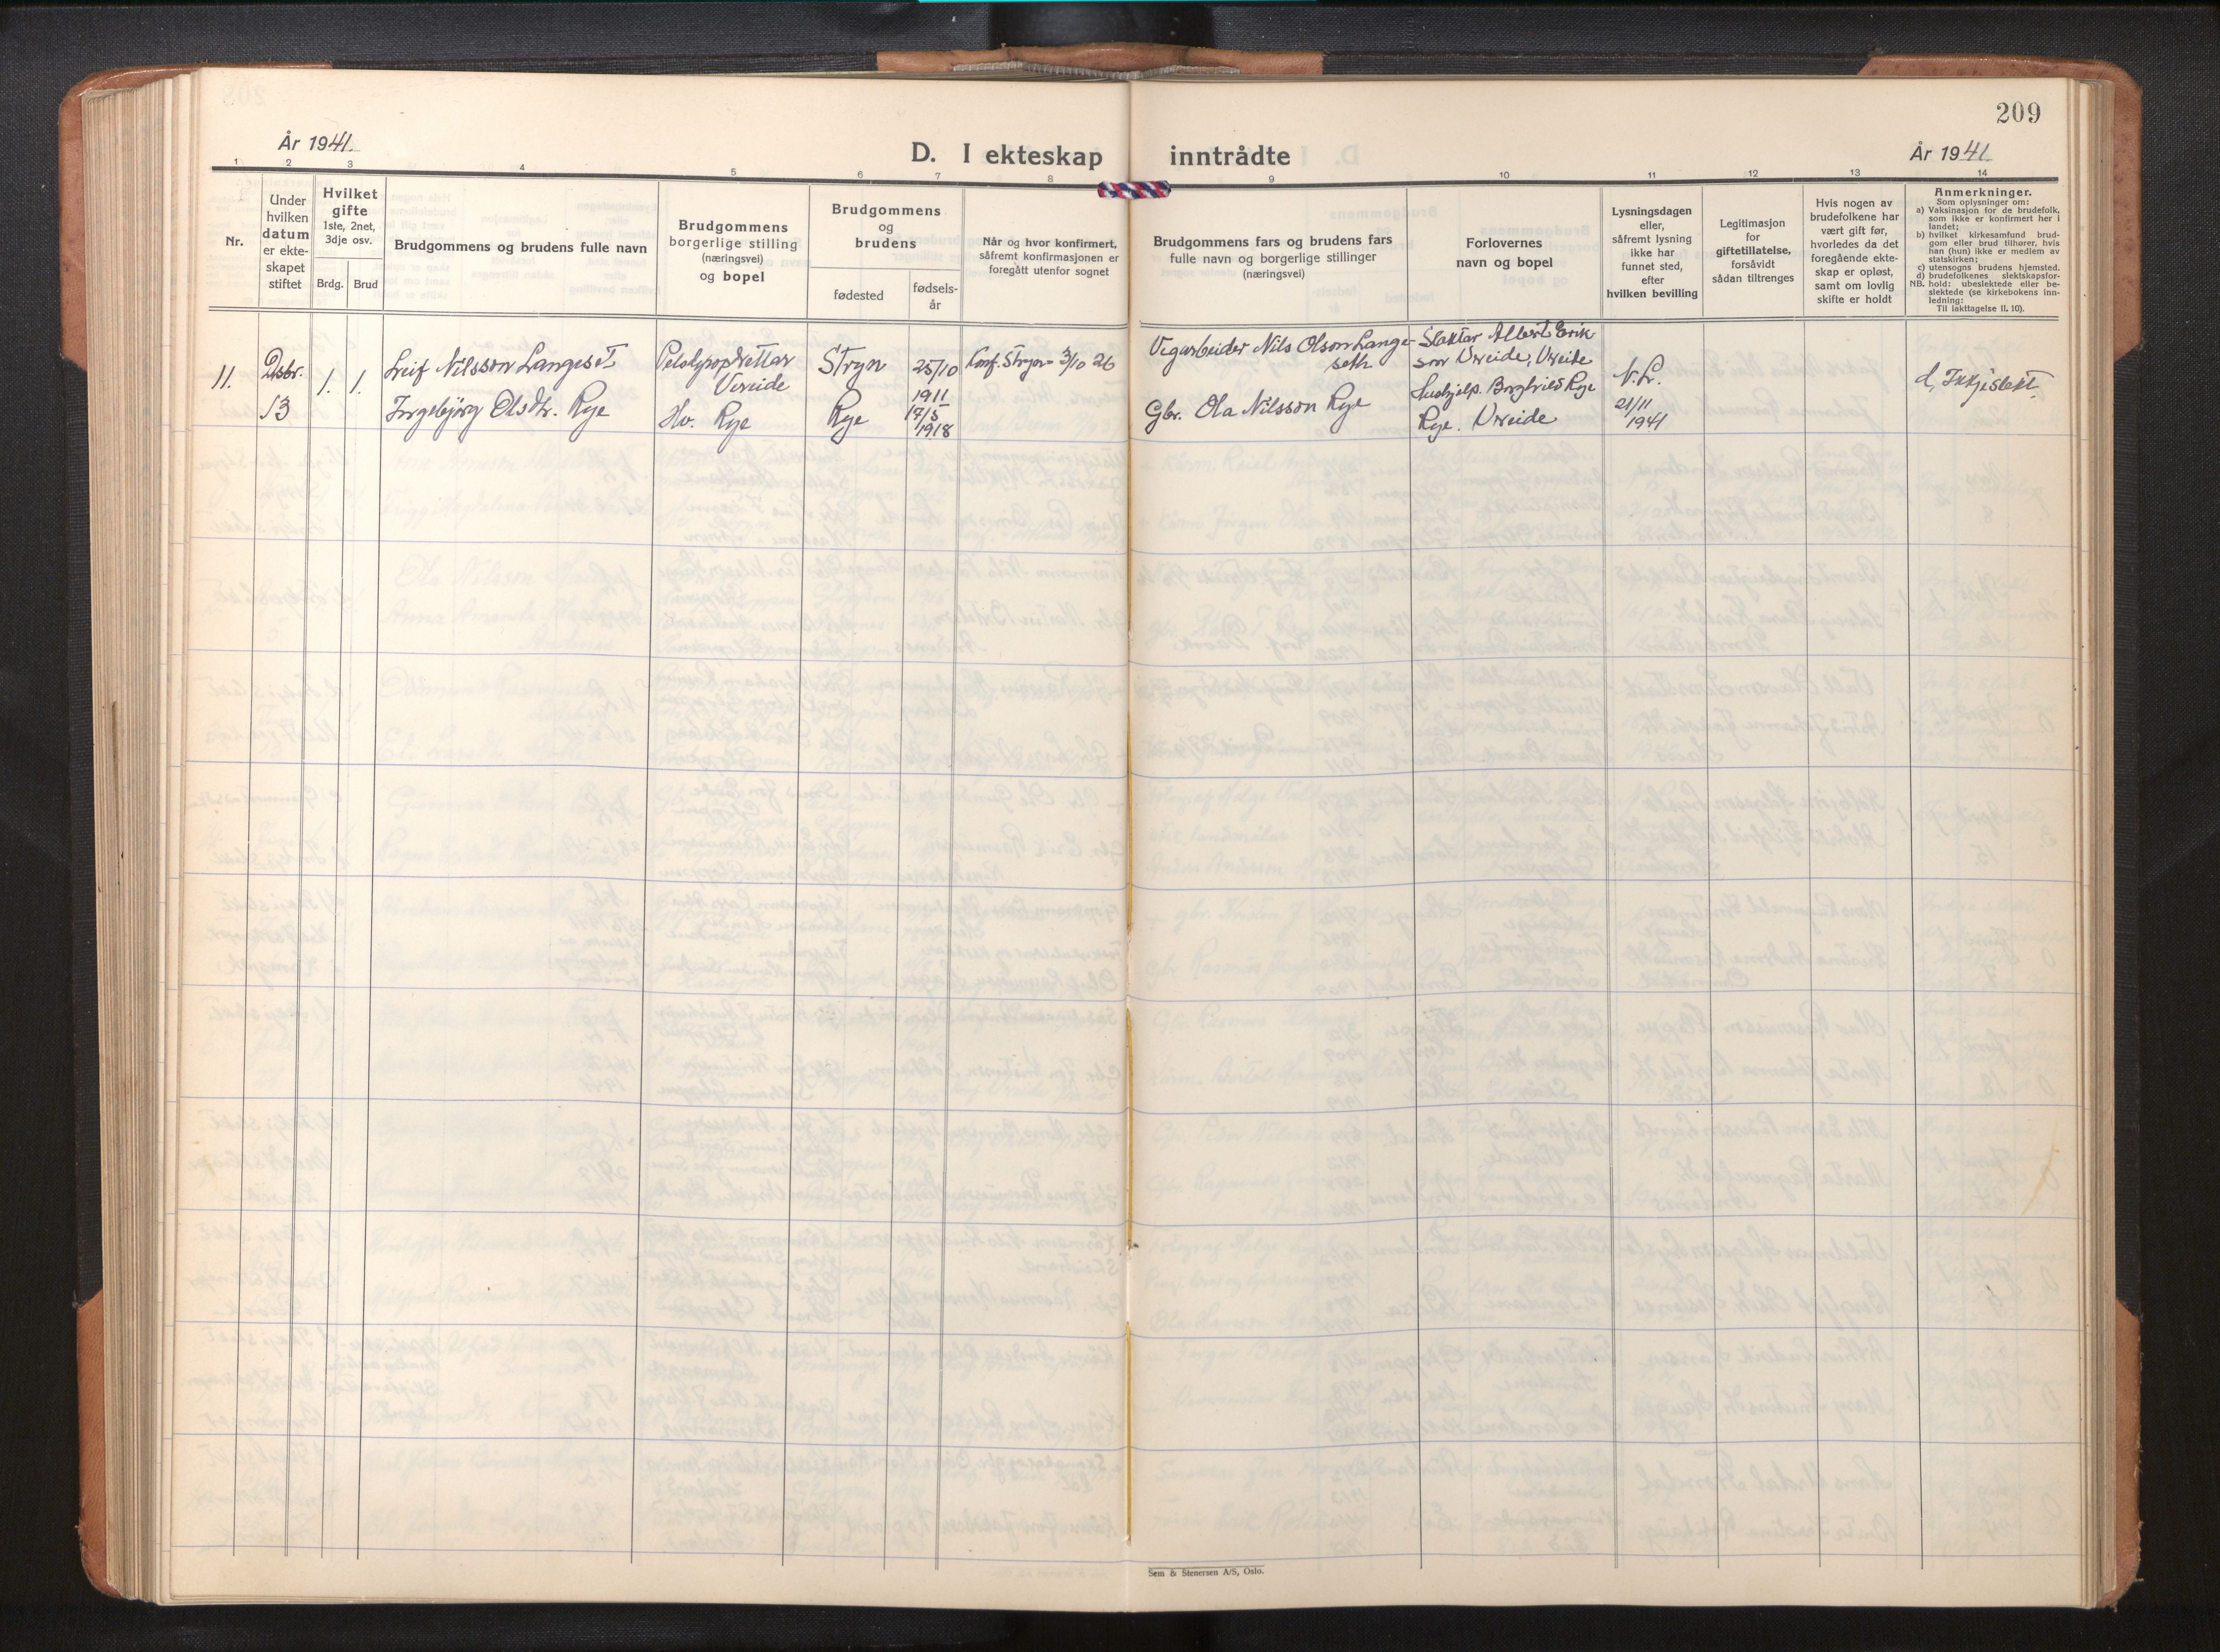 209
År 1941.
D. I ekteskap inntrådte
År 1941
1 2 3 4 5 6 7 8 9 10 11 12 13 14
Nr.
Under
hvilken
datum
er ekte-
skapet
stiftet
Hvilket
gifte
1ste, 2net,
3dje osv.
Brdg. Brud
Brudgommens og brudens fulle navn
Brudgommens
borgerlige stilling
(næringsvei)
og bopel
Brudgommens
og
brudens
fødested
fødsels-
år
Når og hvor konfirmert,
såfremt konfirmasjonen er
foregått utenfor sognet
Brudgommens fars og brudens fars
fulle navn og borgerlige stillinger
(næringsvei)
Forlovernes
navn og bopel
Lysningsdagen
eller,
såfremt lysning
ikke har
funnet sted,
efter
hvilken bevilling
Legitimasjon
for
giftetillatelse,
forsåvidt
sådan tiltrenges
Hvis nogen av
brudefolkene har
vært gift før,
hvorledes da det
foregående ekte-
skap er opløst,
samt om lovlig
skifte er holdt
Anmerkninger.
Som oplysninger om:
a) Vaksinasjon for de brudefolk,
som ikke er konfirmert her i
landet;
b) hvilket kirkesamfund brud-
gom eller brud tilhører, hvis
han (hun) ikke er medlem av
statskirken;
c) utensogns brudens hjemsted.
d) brudefolkenes slektskapsfor-
NB. hold: ubeslektede eller be-
slektede (se kirkebokens inn-
ledning:
Til iakttagelse II. 10).
11.
Dsbr.
13
1. 1.
Leif Nilsson Langeset
Ingebjørg Olsdtr. Rye
Vereide
Hv. Rye
Stryn
Rye
25/10
1911
17/5
1918
Konf. Stryn 3/10 26
Vegarbeider Nils Olson Lange-
seth
Gbr. Ola Nilsson Rye
Slaktar Albert Erik-
son Vreide, Vreide
Hushjelp. Borghild Rye
Rye. Vreide
V. L.
21/11
1941
d, Ikkje slekt.
Sem & Stenersen A/S, Oslo.